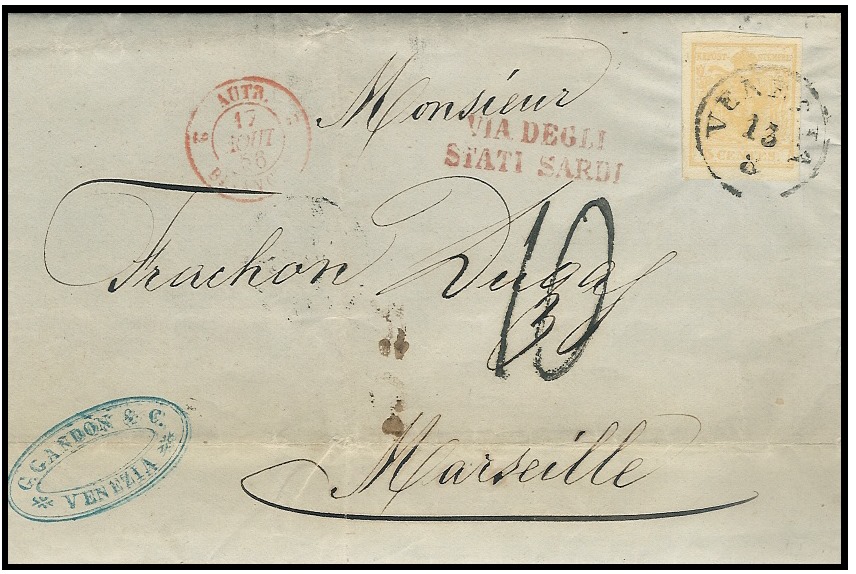 AUTR.
17
AOUT
56
6
Monsieur
VIA DEGLI
STATI SARDI
VENEZIA
13
8
CENTES.
Frachon Dugas
10
Marseille
G. GANDON & C.
VENEZIA